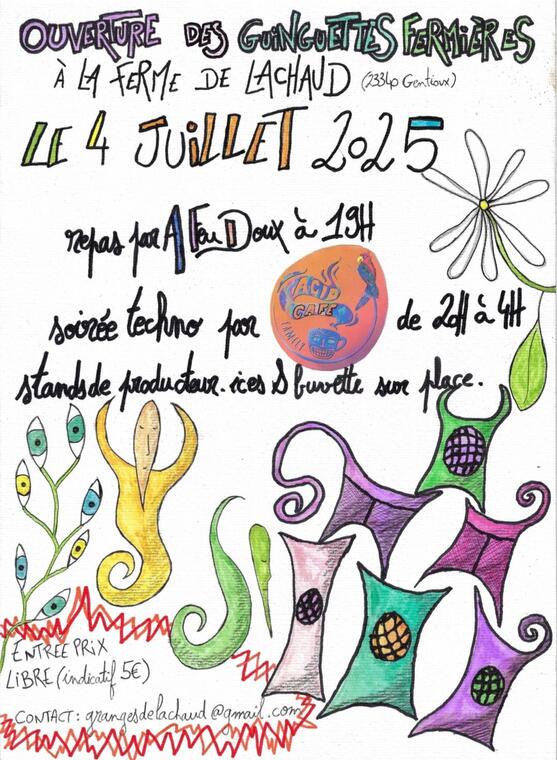 OUVERTURE DES GUINGUETTES FERMIÈRES
À LA FERME DE LACHAUD (23340 Gentioux)
LE 4 JUILLET 2025
repas par A Feu Doux à 19H
soirée techno par ACID CAFE FAMILY de 20H à 4H
stands de producteur.ices & buvette sur place.
ENTREE PRIX
LIBRE (indicatif 5€)
CONTACT : grangesdelachaud@gmail.com